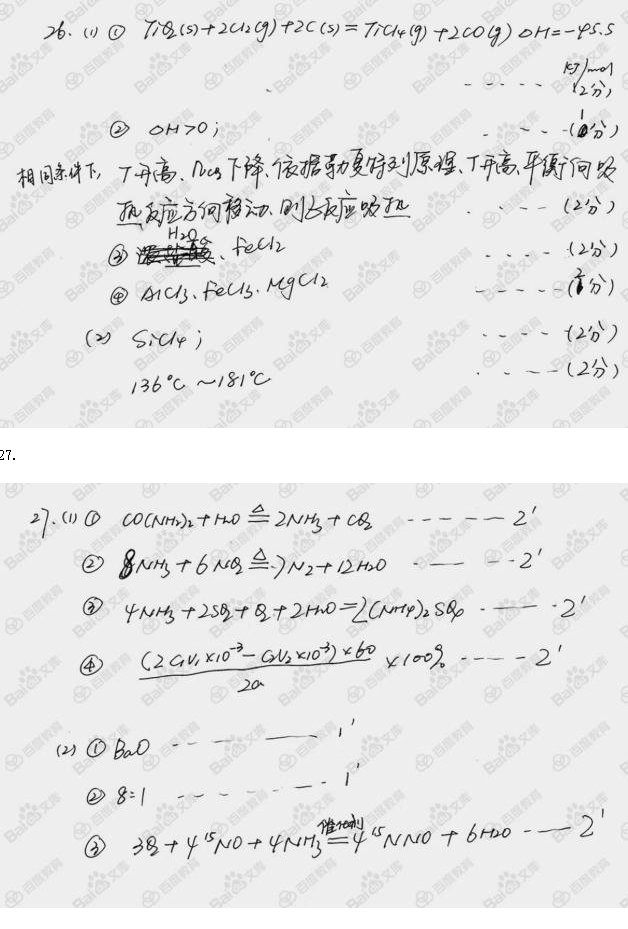 26. (1) ① TiO2(s)+2Cl2(g)+2C(s)=TiCl4(g)+2CO(g) △H=-45.5
kJ/mol
----- (2分)
② △H>0; ----(1分)
相同条件下, T升高、nco下降、依据勒夏特列原理、T升高、平衡向吸
热反应方向移动、则该反应吸热 ----(2分)
③ H2O、FeCl2 ----(2分)
④ AlCl3、FeCl3、MgCl2 -----(2分)
(2) SiCl4; ----(2分)
136℃~181℃ -----(2分)
27.
27. (1) ① CO(NH2)2+H2O △= 2NH3+CO2 ------ 2'
② 8NH3+6NO2 △= 7N2+12H2O ----- 2'
③ 4NH3+2SO2+O2+2H2O=2(NH4)2SO4 ----- 2'
④ (2C1V1×10⁻³-C2V2×10⁻³)×60
×100% ----- 2'
2a
(2) ① BaO ------ 1'
② 8:1 ------ 1'
③ 3O2+4¹⁵NO+4NH3 催化剂= 4¹⁵NNO+6H2O --- 2'
Baidu文库 百度教育